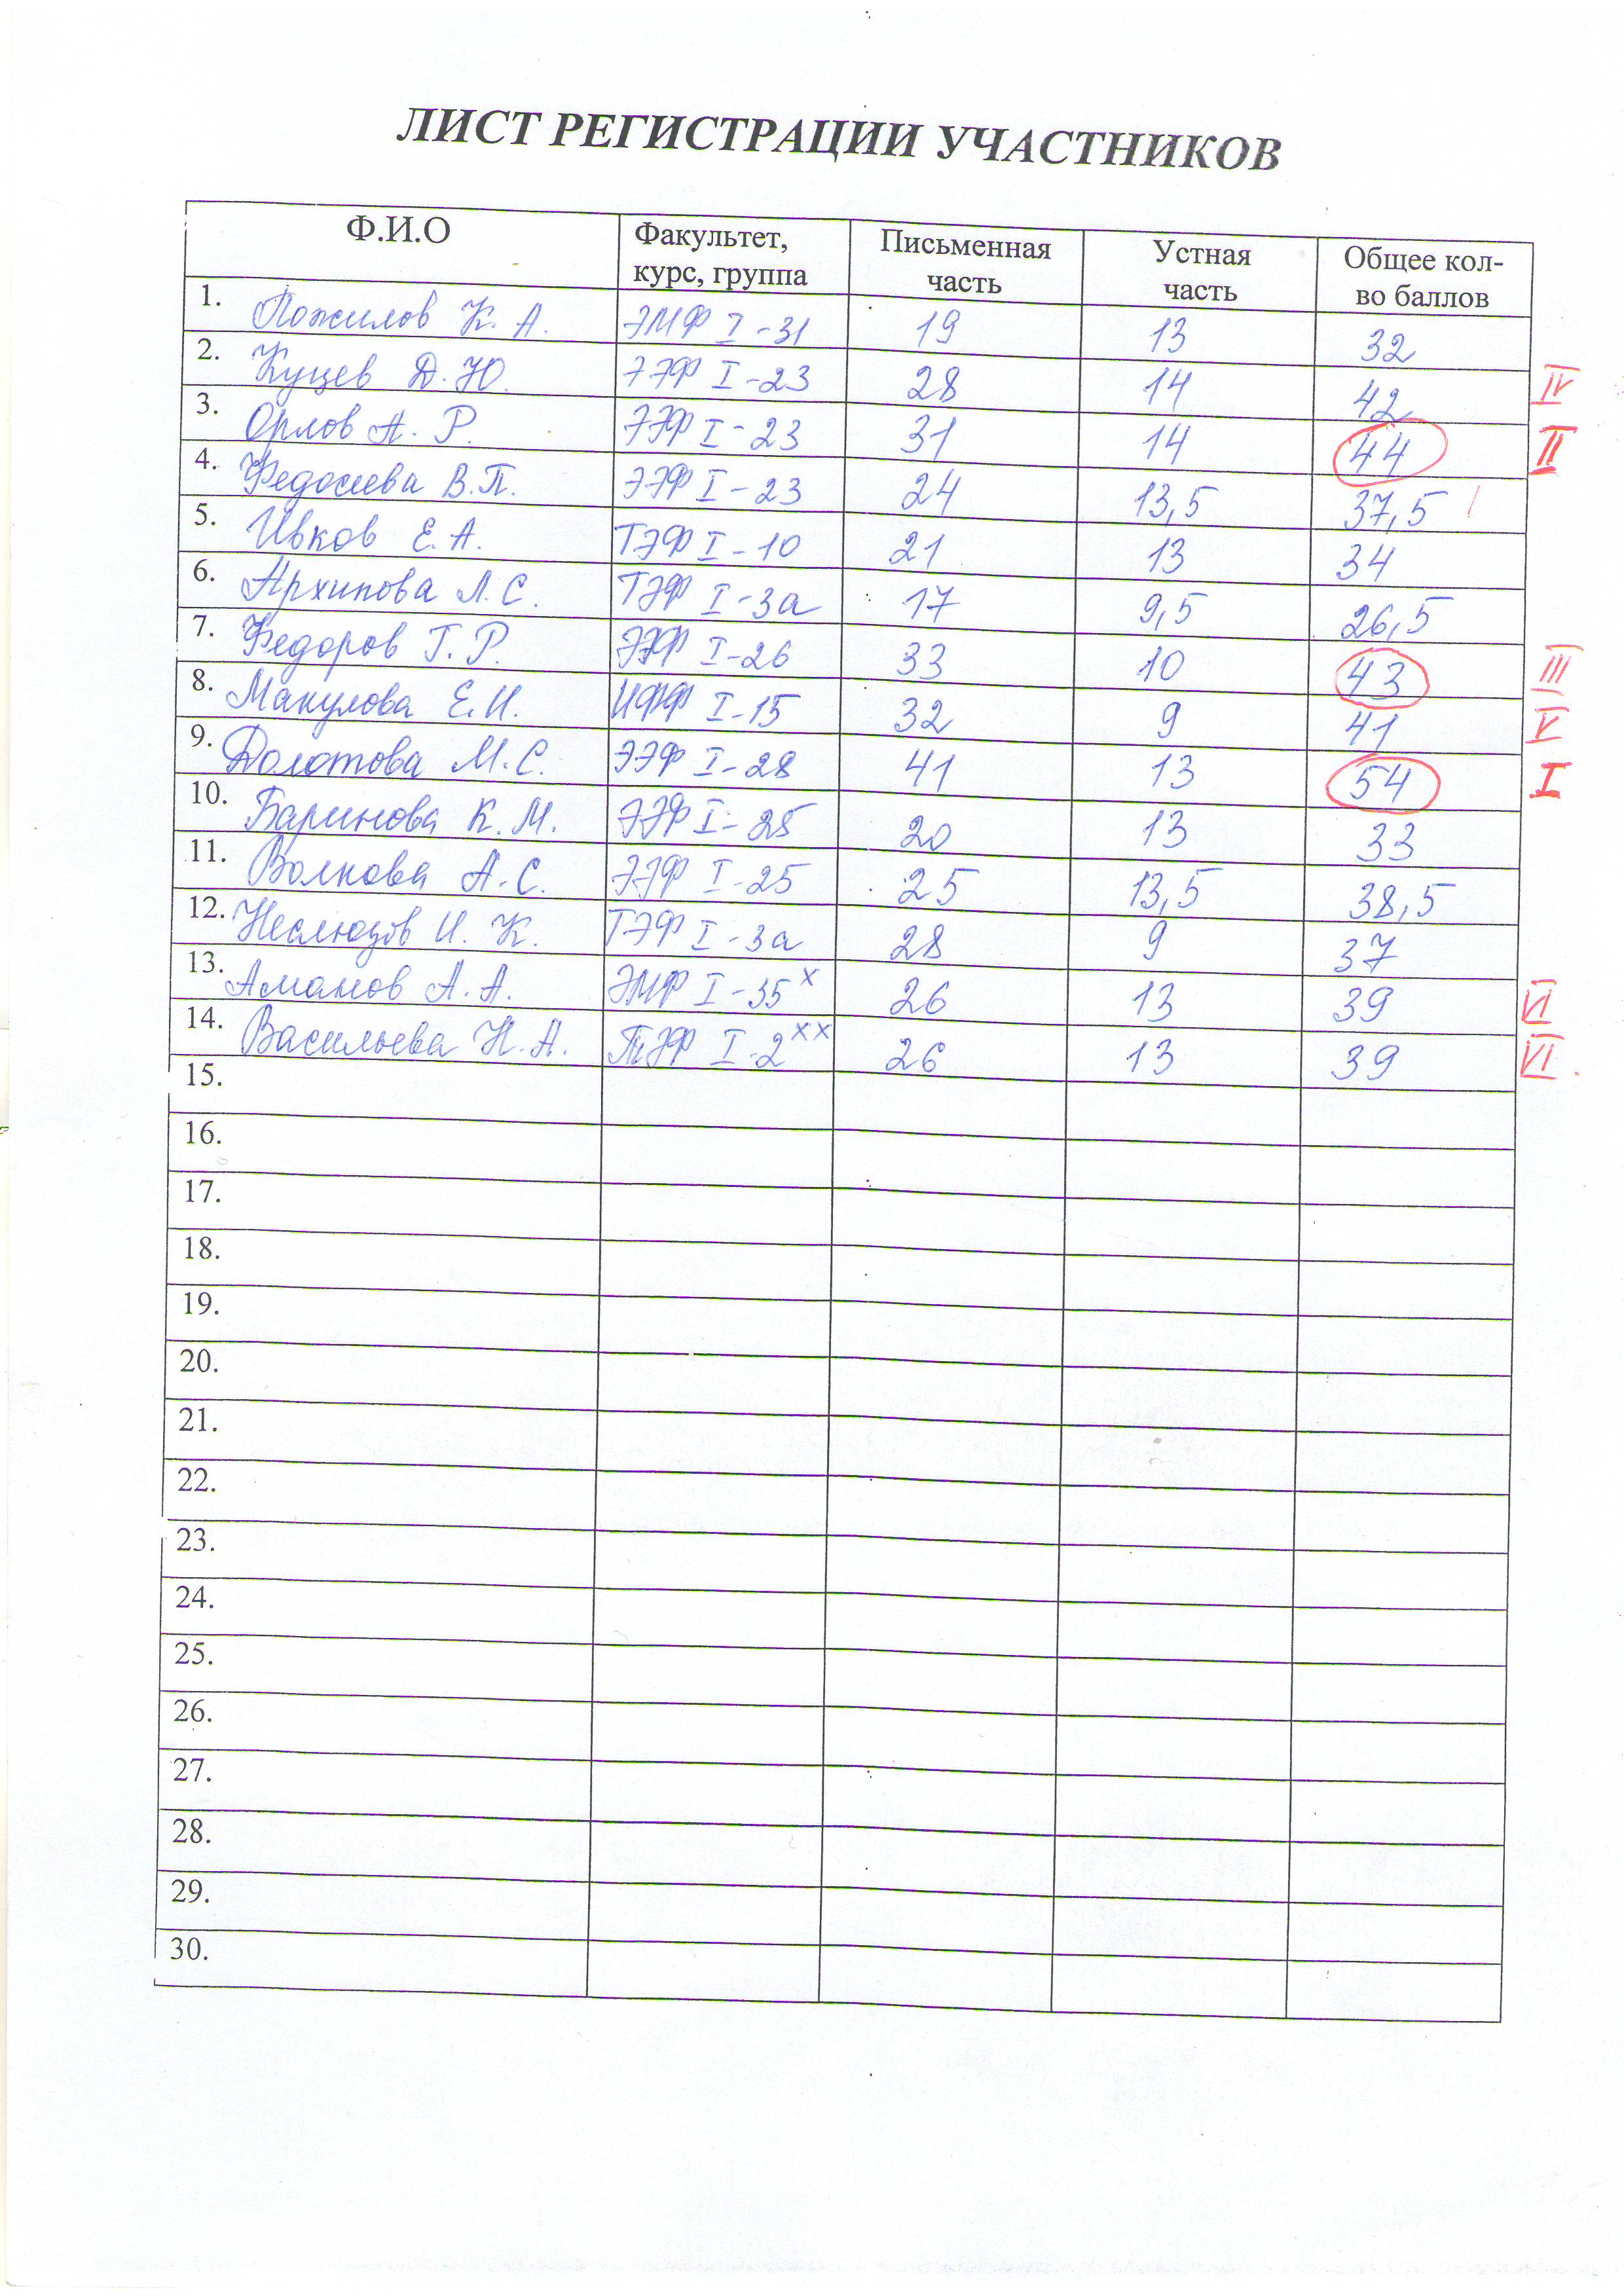 ЛИСТ РЕГИСТРАЦИИ УЧАСТНИКОВ
Ф.И.О Факультет, курс, группа Письменная часть Устная часть Общее кол-во баллов
1. Пожилов К. А. ЭМФ I-31 19 13 32
2. Куцев Д. Ю. ЭЭФ I-23 28 14 42 IV
3. Орлов А. Р. ЭЭФ I-23 31 14 44 II
4. Федосеева В.П. ЭЭФ I-23 24 13,5 37,5
5. Ивков Е. А. ТЭФ I-10 21 13 34
6. Архипова Л. С. ТЭФ I-3а 17 9,5 26,5
7. Федоров Г. Р. ЭЭФ I-26 33 10 43 III
8. Макулова Е. И. ИФФ I-15 32 9 41 V
9. Долотова М. С. ЭЭФ I-28 41 13 54 I
10. Баринова К. М. ЭЭФ I-25 20 13 33
11. Волкова А. С. ЭЭФ I-25 25 13,5 38,5
12. И. К. ТЭФ I-3а 28 9 37
13. Аманов А. А. ЭМФ I-35 x 26 13 39 VI
14. Васильева Н. А. ТЭФ I-2 xx 26 13 39 VI.
15.
16.
17.
18.
19.
20.
21.
22.
23.
24.
25.
26.
27.
28.
29.
30.